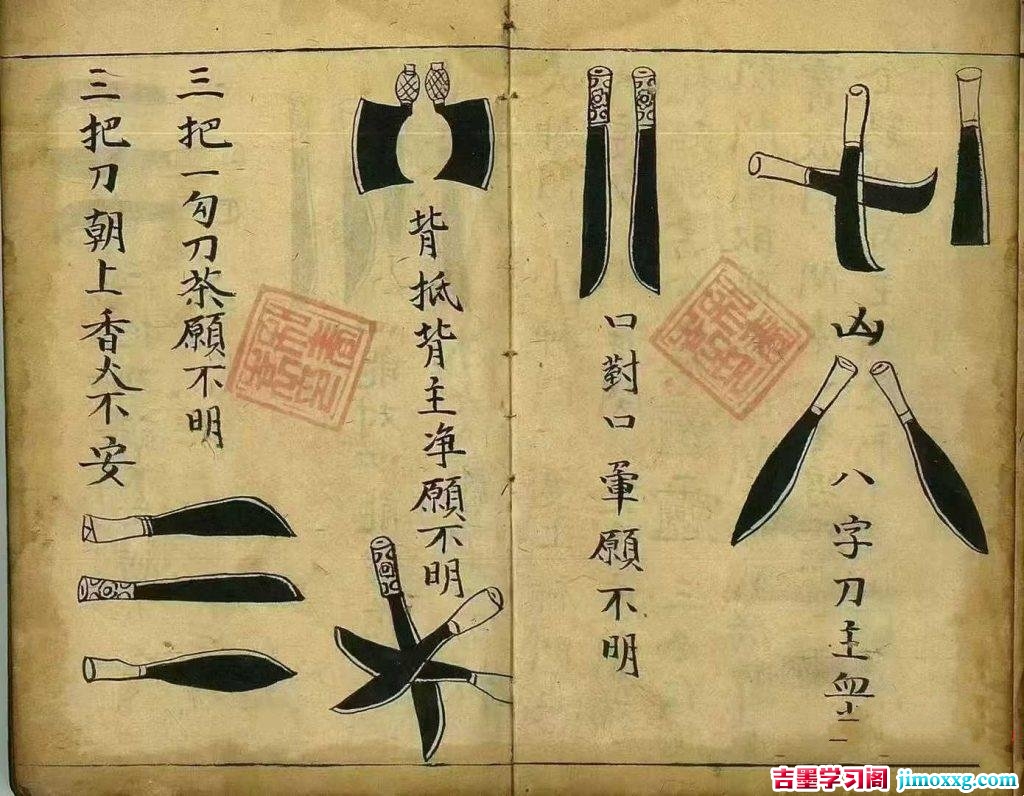 凶
八字刀主血
口對口軍願不明
背抵背主净願不明
三把一勾刀茶願不明
三把刀朝上香火不安
吉墨学习阁 jimoxxg.com